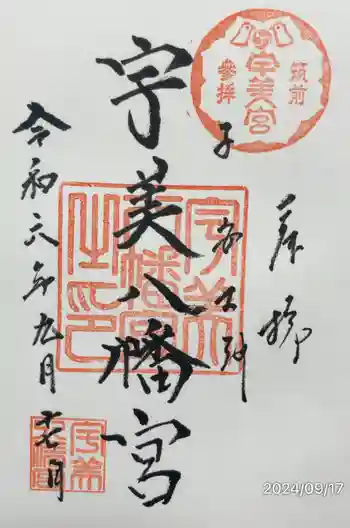 奉拝
筑前
宇美宮
參拝
子安大神
宇美八幡宮
宇美
八幡宮
之印
令和六年九月十七日
宇美
八幡宮
2024/09/17